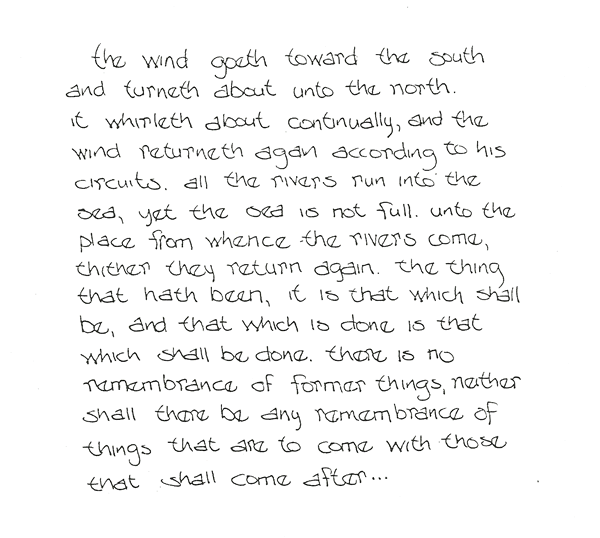 the wind goeth toward the south
and turneth about unto the north.
it whirleth about continually, and the
wind returneth agan according to his
circuits. all the rivers run into the
sea, yet the sea is not full. unto the
place from whence the rivers come,
thither they return again. the thing
that hath been, it is that which shall
be, and that which is done is that
which shall be done. there is no
remembrance of former things, neither
shall there be any remembrance of
things that are to come with those
that shall come after...